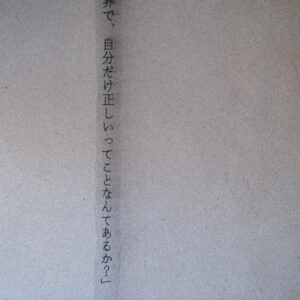 界で、自分だけ正しいってことなんてあるか？」